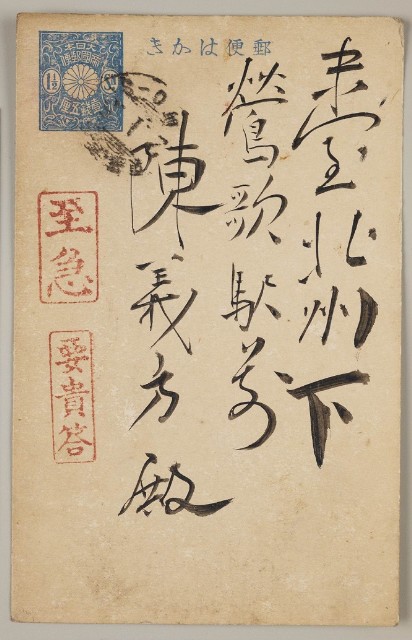 郵便はかき
臺北州下
鶯歌駅前
陳義方殿
至急
要貴答
大日本帝國郵便
1½
壹錢五厘